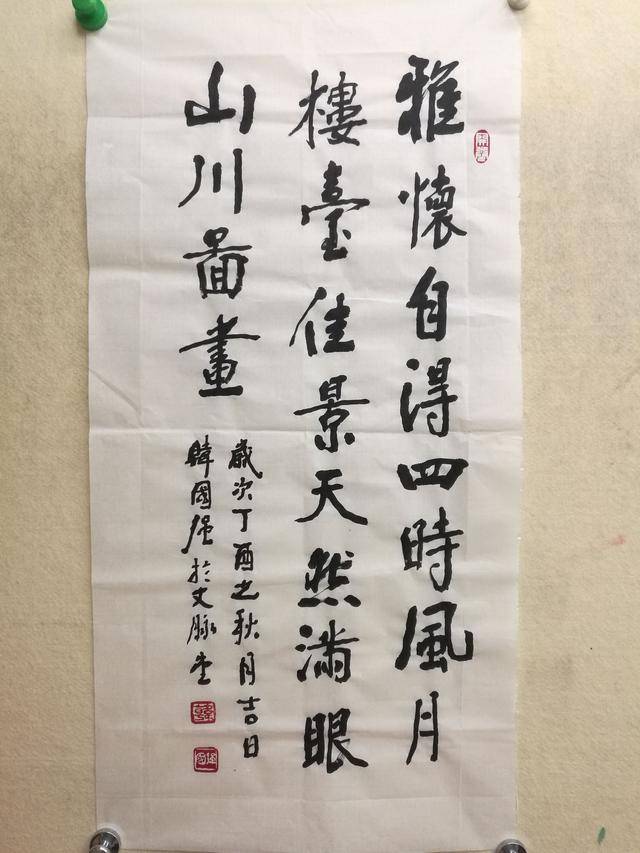 雅懷自得四時風月
樓臺佳景天然滿眼
山川圖畫
歲次丁酉之秋月吉日
韓國強於文脉堂